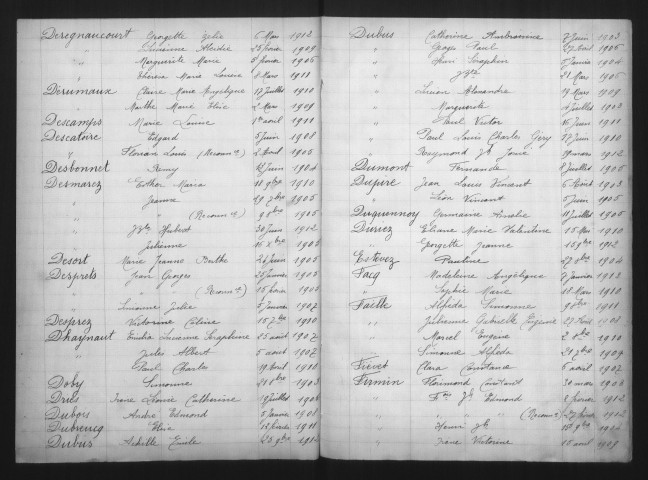 Deregnaucourt Georgette Julie 6 Mai 1912
" Lucienne Alcidie 25 février 1909
" Marguerite Marie 5 février 1906
" Marie Louise 8 Mars 1911
Derumaux Claire Marie Angélique 17 Juillet 1910
" Marthe Marie 2 Mars 1909
Descamps Marie Louise 1er avril 1911
Descatoire Edgard 5 Juin 1908
" Florian Louis (Reconn ce) 2 Avril 1905
Desbonnet Remy Juin 1904
Desmarez Esther Maria 11 9bre 1910
" Jeanne 29 7bre 1905
" (Reconn ce) 9 8bre 1905
" Jh Hubert 30 Juin 1912
" Julienne 16 xbre 1906
Desort Marie Jeanne Berthe 21 Juin 1905
Desprets Jean Georges 25 Janvier 1905
" (Reconn ce) 15 février 1905
" Simonne Julie 5 Janvier 1907
Desprez Victorine Céline 15 7bre 1910
Dhaynaut Emilia Lucienne Séraphine 25 août 1907
" Jules Albert 5 août 1907
" Paul Charles 19 Avril 1910
Doby Simonne 21 8bre 1903
Dries Irène Léonie Catherine 19 Juillet 1906
Dubois André Edmond 5 Janvier 1908
Dubreucq 13 février 1911
Dubus Achille Emile 23 9bre 1912
Dubus Catherine Ambroisine 7 Juin 1903
" Georges Paul 27 Avril 1906
" Henri Séraphin 5 Janvier 1904
" Jh 21 Mars 1905
" Lucien Alexandre 19 Mars 1909
" Marguerite 4 Juillet 1913
" Paul Victor 16 Juin 1911
" Paul Louis Charles Géry 17 Juin 1910
" Raymond Jh 29 mars 1912
Dumont Fernande 8 Juillet 1905
Dupire Jean Louis Vincent 6 Août 1903
" Léon Vincent 5 Juin 1905
Duquennoy Germaine Amélie 11 Juillet 1905
Duriez Eliane Marie Valentine 15 Mai 1910
" Georgette Jeanne 15 9bre 1912
Estevez Pauline 27 9bre 1904
Facq Madeleine Angélique 7 Janvier 1913
" Sophie Marie 18 Mars 1910
Faille Alfréda Simonne 9 8bre 1911
" Julienne Gabrielle Eugénie 27 Avril 1908
" Marcel Eugène 2 8bre 1910
" Simonne Alfréda 21 7bre 1904
Fievet Clara Constance 6 août 1907
Firmin Florimond Constant 30 mars 1906
" Fçois Jh Edmond 3 février 1902
" " " (Reconn ce) 27 février 1902
" Henri Jh 15 9bre 1904
" Irène Victorine 15 avril 1909